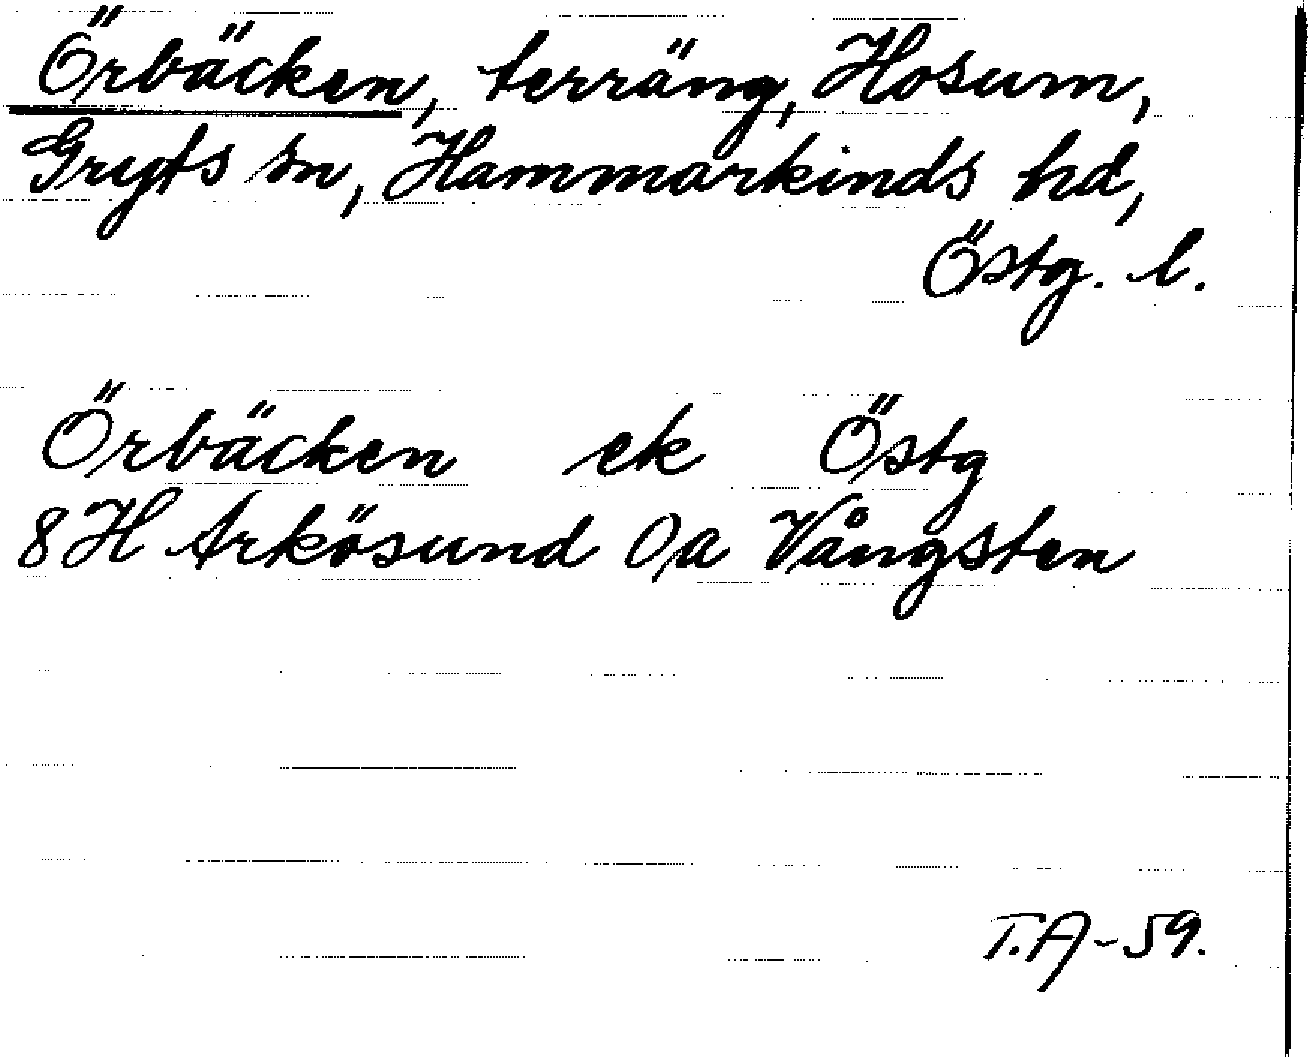 Örbäcken, terräng, Hosum,
Gryts sn, Hammarkinds hd,
Östg. l.
Örbäcken ek Östg
8H Arkösund 0a Vångsten
T.A-59.